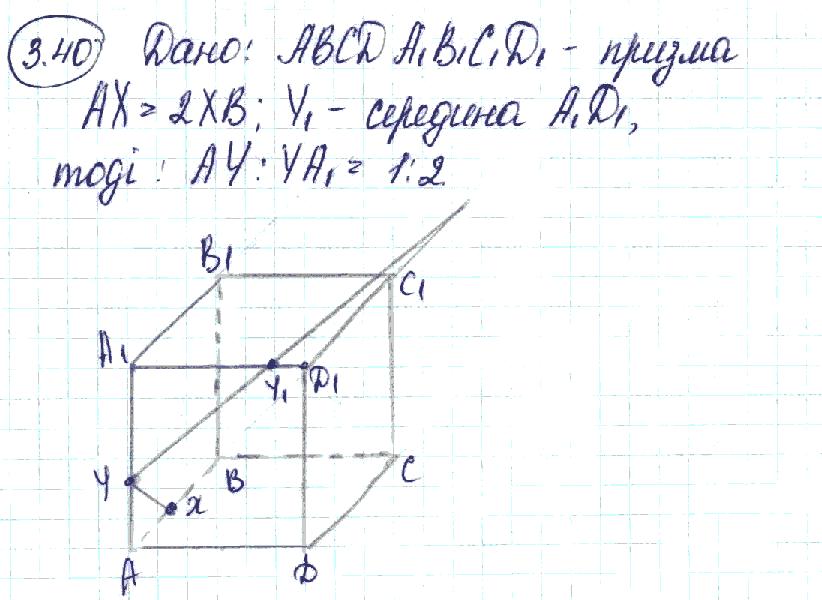 3.40 Дано: ABCDA₁B₁C₁D₁ - призма
AX = 2XB; Y₁ - середина A₁D₁,
тоді: AY : YA₁ = 1:2
B₁
C₁
A₁
Y₁
D₁
Y
X
B
C
A
D